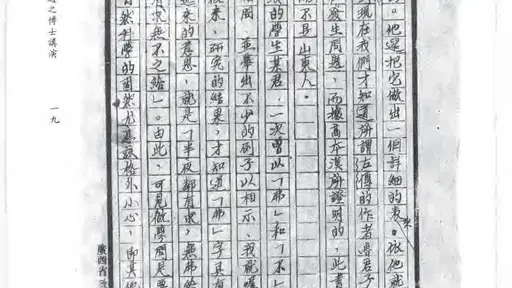 的。他還把它做出一個詳細的表。依他就
現在我們才知道所謂左傳的作者魯君子
發生問題,而據高本漢所證明的,此書
而不是山東人。
的學生某君,一次曾以「弗」和「不」
問,並舉出不少的例子以相示,我就囑
來,研究的結果,才知道「弗」字具有
來的意思,就是「半夜都有
有求無不之給」。由此,可見做學問是要
自然科學的固然應該格外小心,即其他
之博士講演 一九
廣西省立